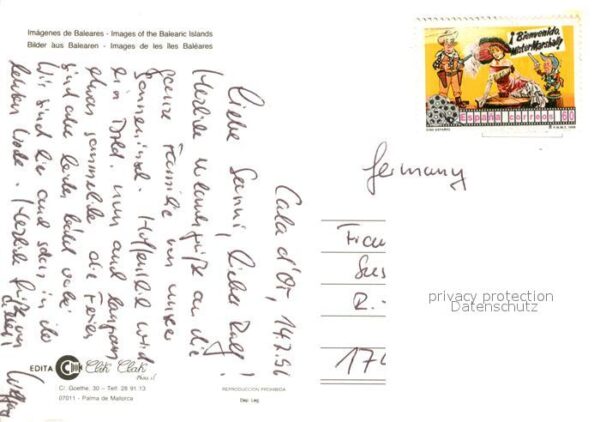 Imágenes de Baleares - Images of the Balearic Islands
Bilder aus Balearen - Images de les îles Baléares
¡Bienvenido,
mister Marshall!
CINE ESPAÑOL
España correos 60
F.N.M.T. 1996
Cala d'Or, 14.
Liebe Sanni, lieber Ralf!
Herzliche Urlaubsgrüße an die
ganze Familie von unserer
Sonneninsel. Hoffentlich wird
in Dtld. nun auch langsam
etwas sommerlich, die Ferien
sind aber leider bald vorbei
Wir sind hier auch schon in der
letzten Woche. Herzliche Grüße von
Germany
Frau
Sus
R.
174
privacy protection
Datenschutz
EDITA Clik Clak
C/. Goethe, 30 - Telf. 28 91 13
07011 - Palma de Mallorca
REPRODUCCION PROHIBIDA
Dep. Leg.